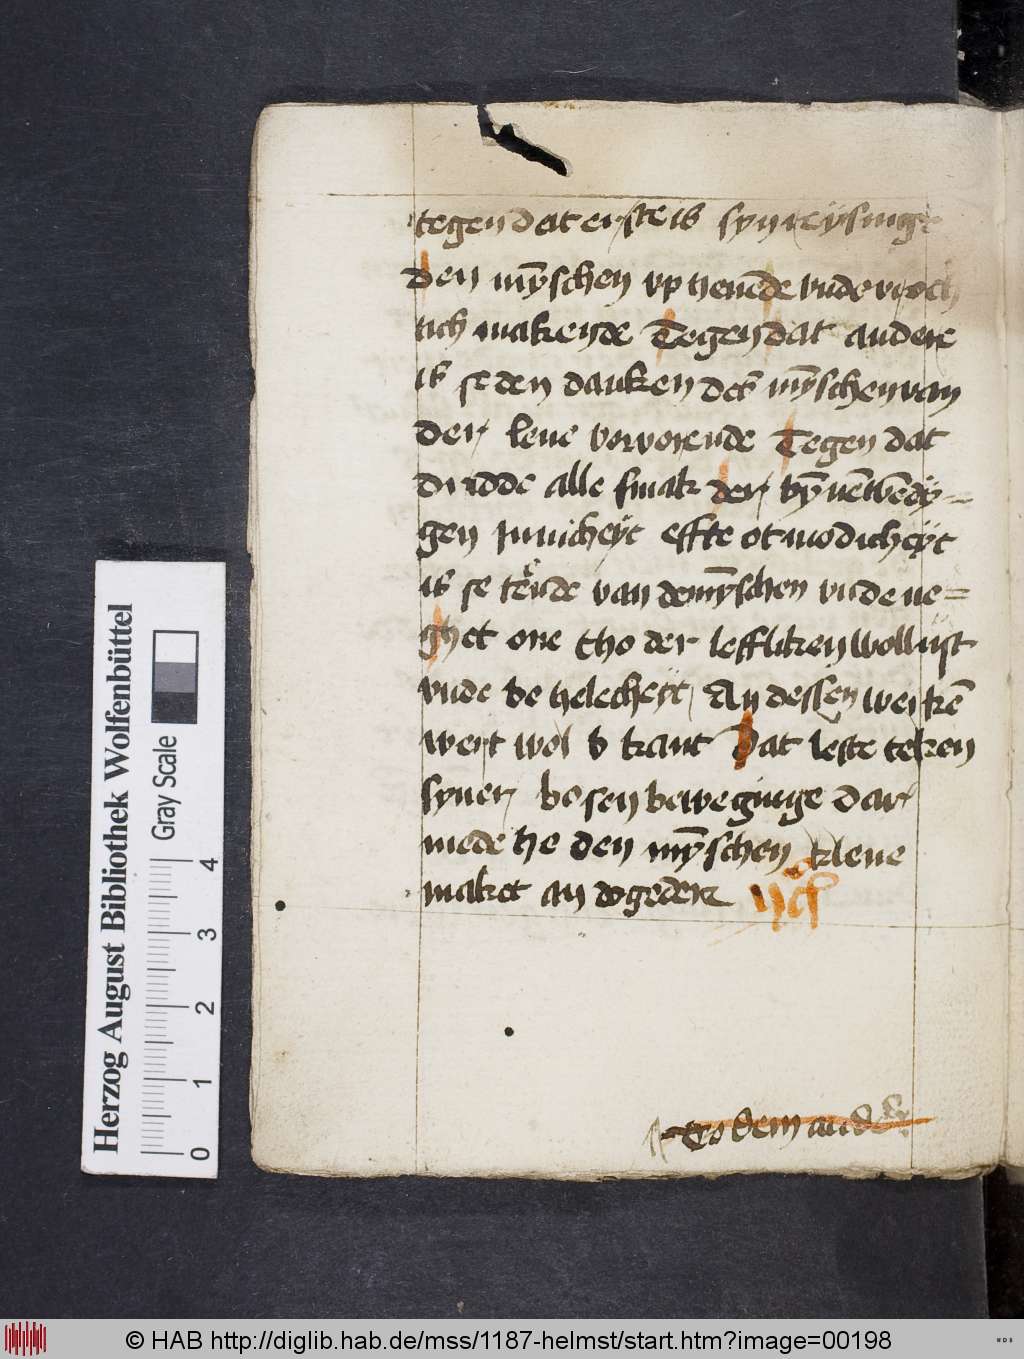 tegen dat erste is syn reysinge
den mēschen vp heuēde vnde vroch
tich makende Tegen dat andere
is se den danken des mēschen van
der leue vorvorende Tegen dat
drudde alle smak der bȳnēwēdy=
gen Jnnicheyt effte otmodicheyt
is se tēnde van dem mēschen vnde ne=
ghet one tho der leffliken wollust
vnde behelecheyt An dessen werkē
wert wol b kant Dat leste teken
syner bosen beweginge dar
mede he den mēschen klene
maket an dogeden
To dem ander
Herzog August Bibliothek Wolfenbüttel
Gray Scale
0 1 2 3 4
© HAB http://diglib.hab.de/mss/1187-helmst/start.htm?image=00198